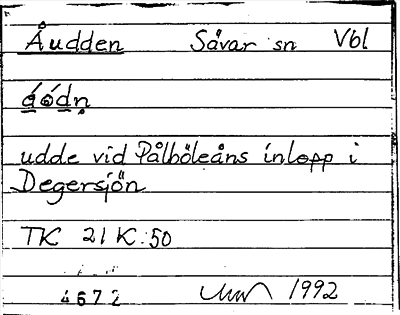 Åudden Sävar sn Vbl
udde vid Pålböleåns inlopp i
Degersjön
TK 21 K:50
4672 1992